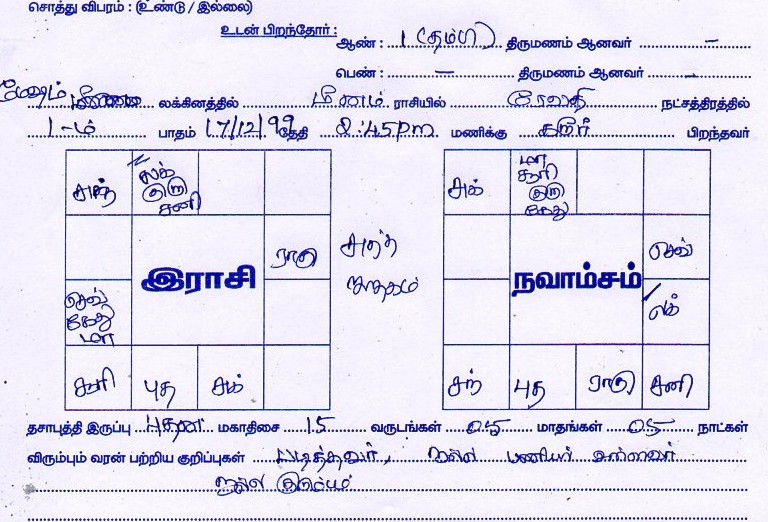 சொத்து விபரம் : (உண்டு / இல்லை)
உடன் பிறந்தோர் : ஆண் : 1 (தம்பி) திருமணம் ஆனவர் –
பெண் : – திருமணம் ஆனவர் –
மேஷம் லக்கினத்தில் மீனம் ராசியில் ரேவதி நட்சத்திரத்தில்
1-ம் பாதம் 17/12/99 தேதி 2:45pm மணிக்கு கரூர் பிறந்தவர்
சந் லக் குரு சனி
ராகு
இராசி
செவ் கேது மா
சூரி புத சுக்
சுத்த ஜாதகம்
சுக் மா சூரி குரு கேது
செவ்
நவாம்சம்
லக்
சந் புத ராகு சனி
தசாபுத்தி இருப்பு புதன் மகாதிசை 15 வருடங்கள் 05 மாதங்கள் 05 நாட்கள்
விரும்பும் வரன் பற்றிய குறிப்புகள் படித்தவர், நல்ல பணியில் உள்ளவர்
நல்ல குடும்பம்